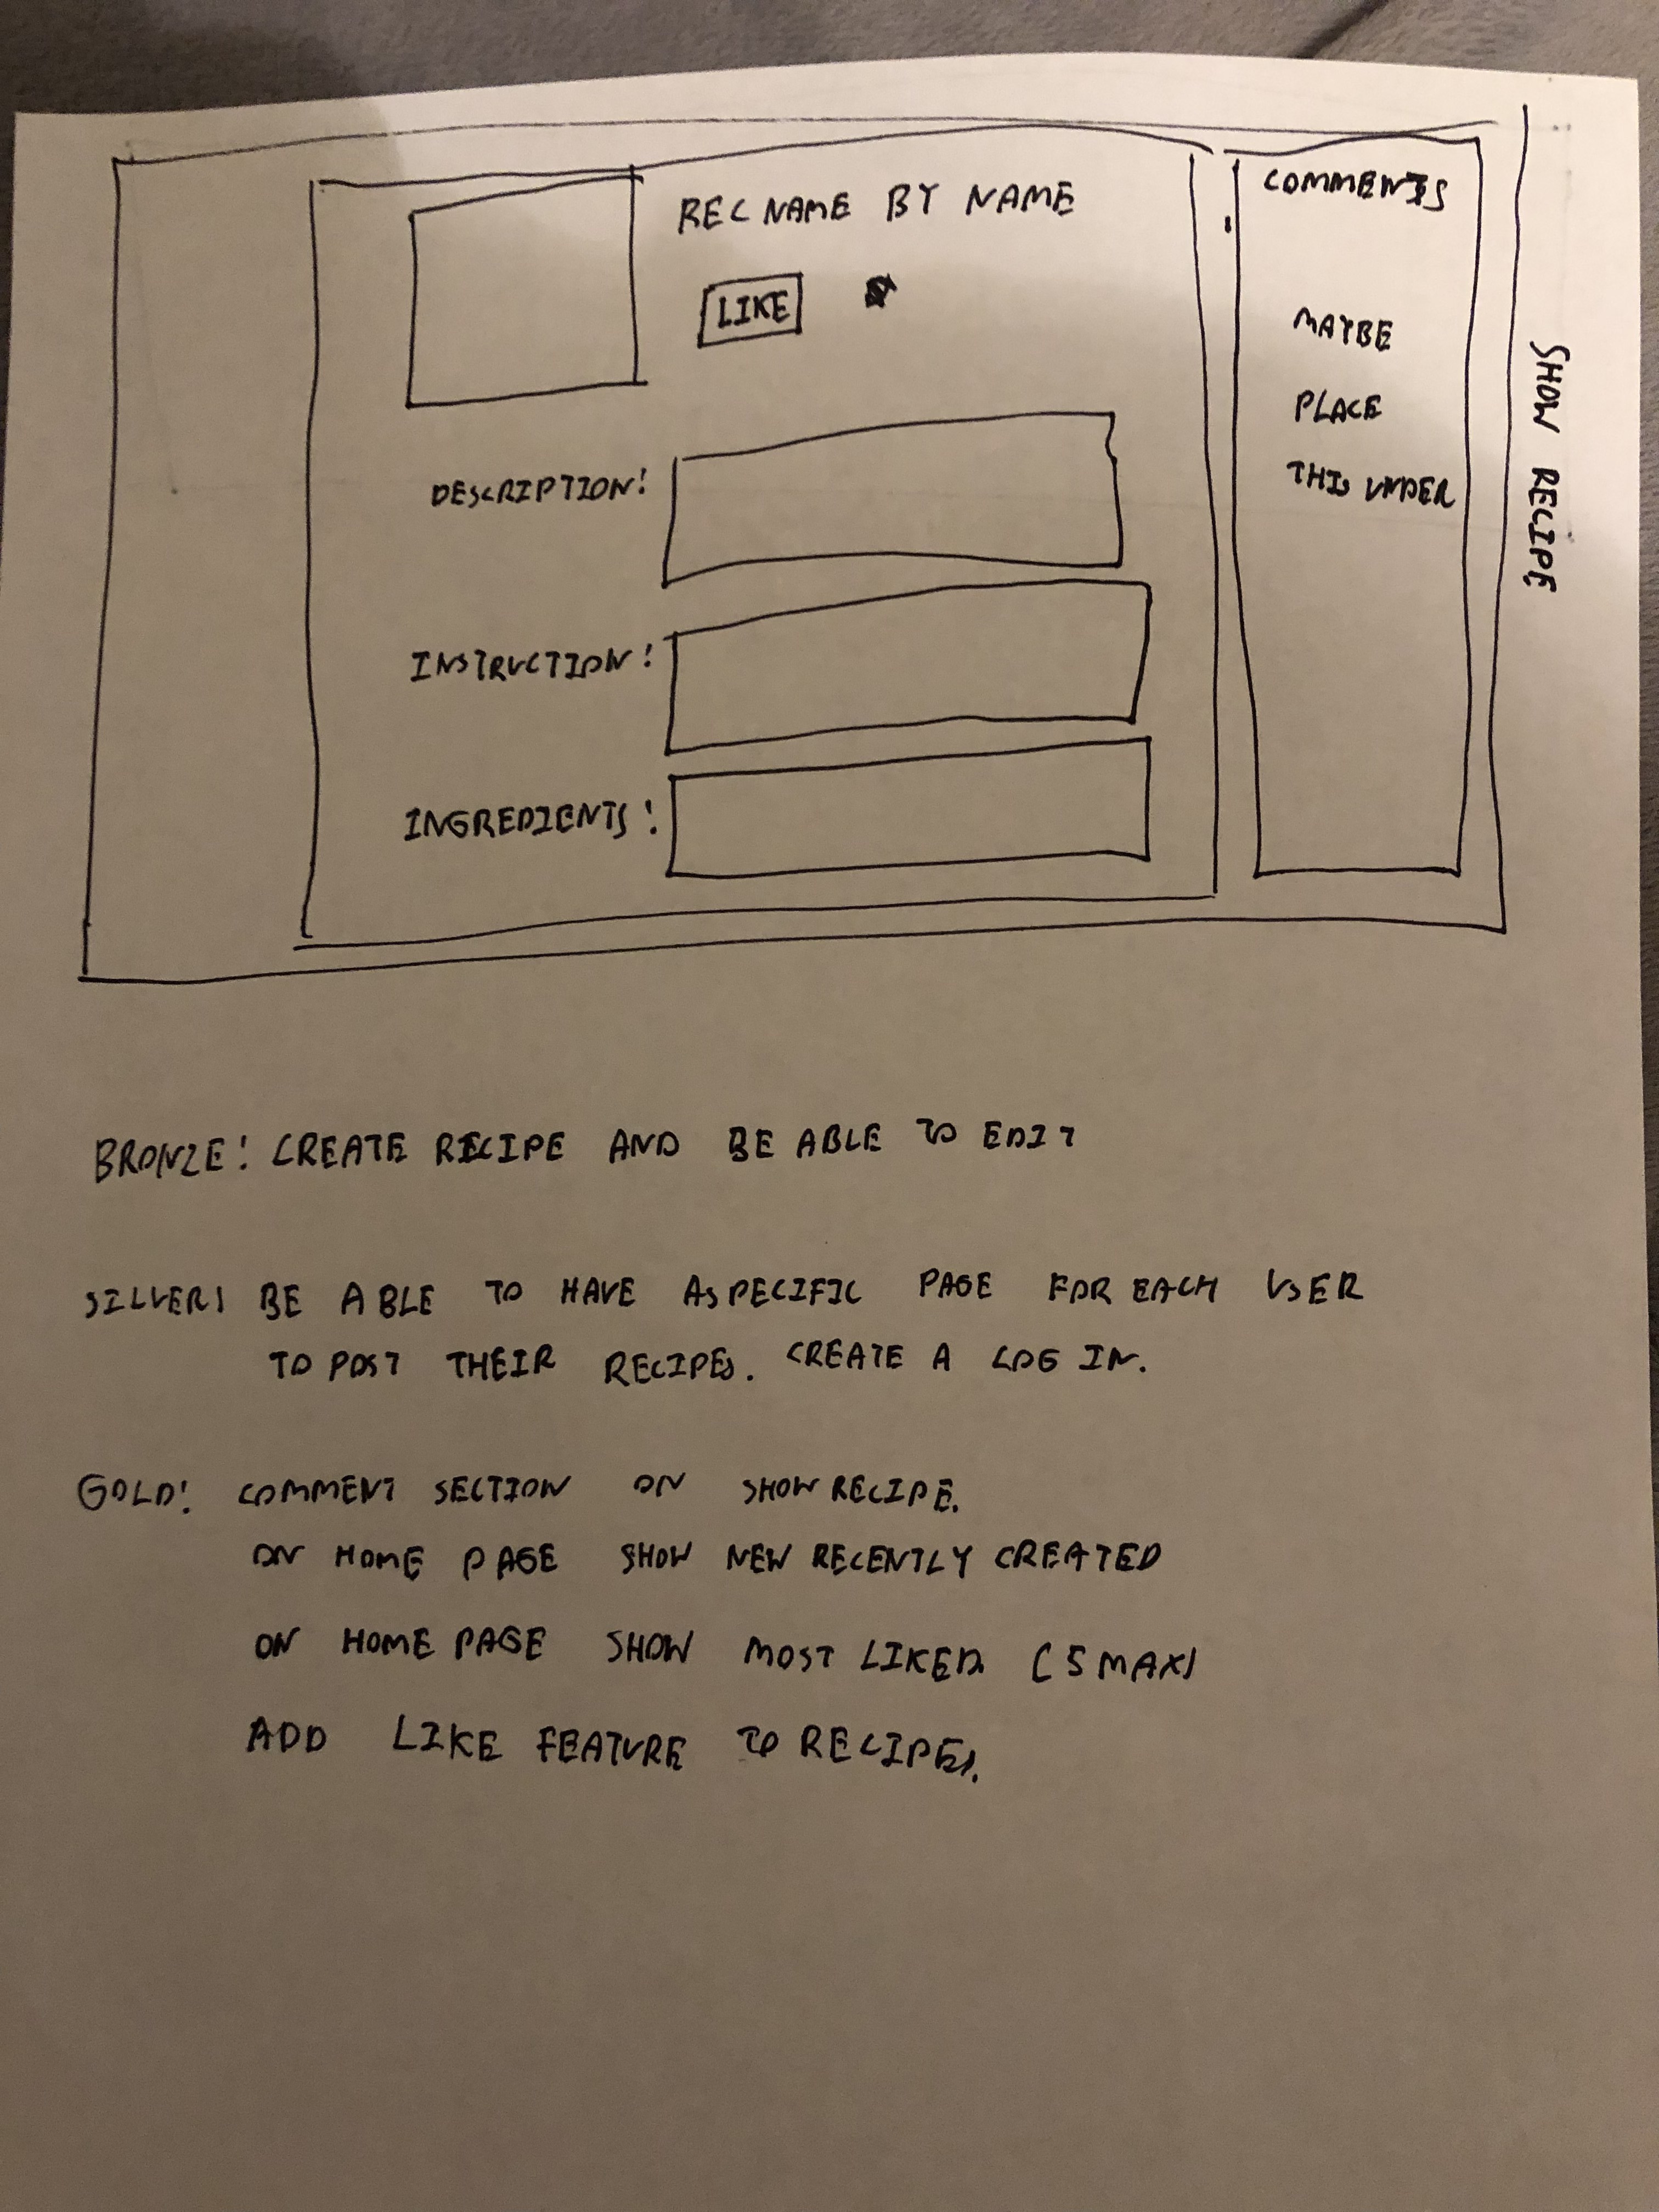 REC NAME BY NAME
LIKE
DESCRIPTION:
INSTRUCTION:
INGREDIENTS:
COMMENTS
MAYBE
PLACE
THIS UNDER
SHOW RECIPE
BRONZE: CREATE RECIPE AND BE ABLE TO EDIT
SILVER: BE ABLE TO HAVE A SPECIFIC PAGE FOR EACH USER
TO POST THEIR RECIPES. CREATE A LOG IN.
GOLD: COMMENT SECTION ON SHOW RECIPE.
ON HOME PAGE SHOW NEW RECENTLY CREATED
ON HOME PAGE SHOW MOST LIKED (5 MAX)
ADD LIKE FEATURE TO RECIPES.